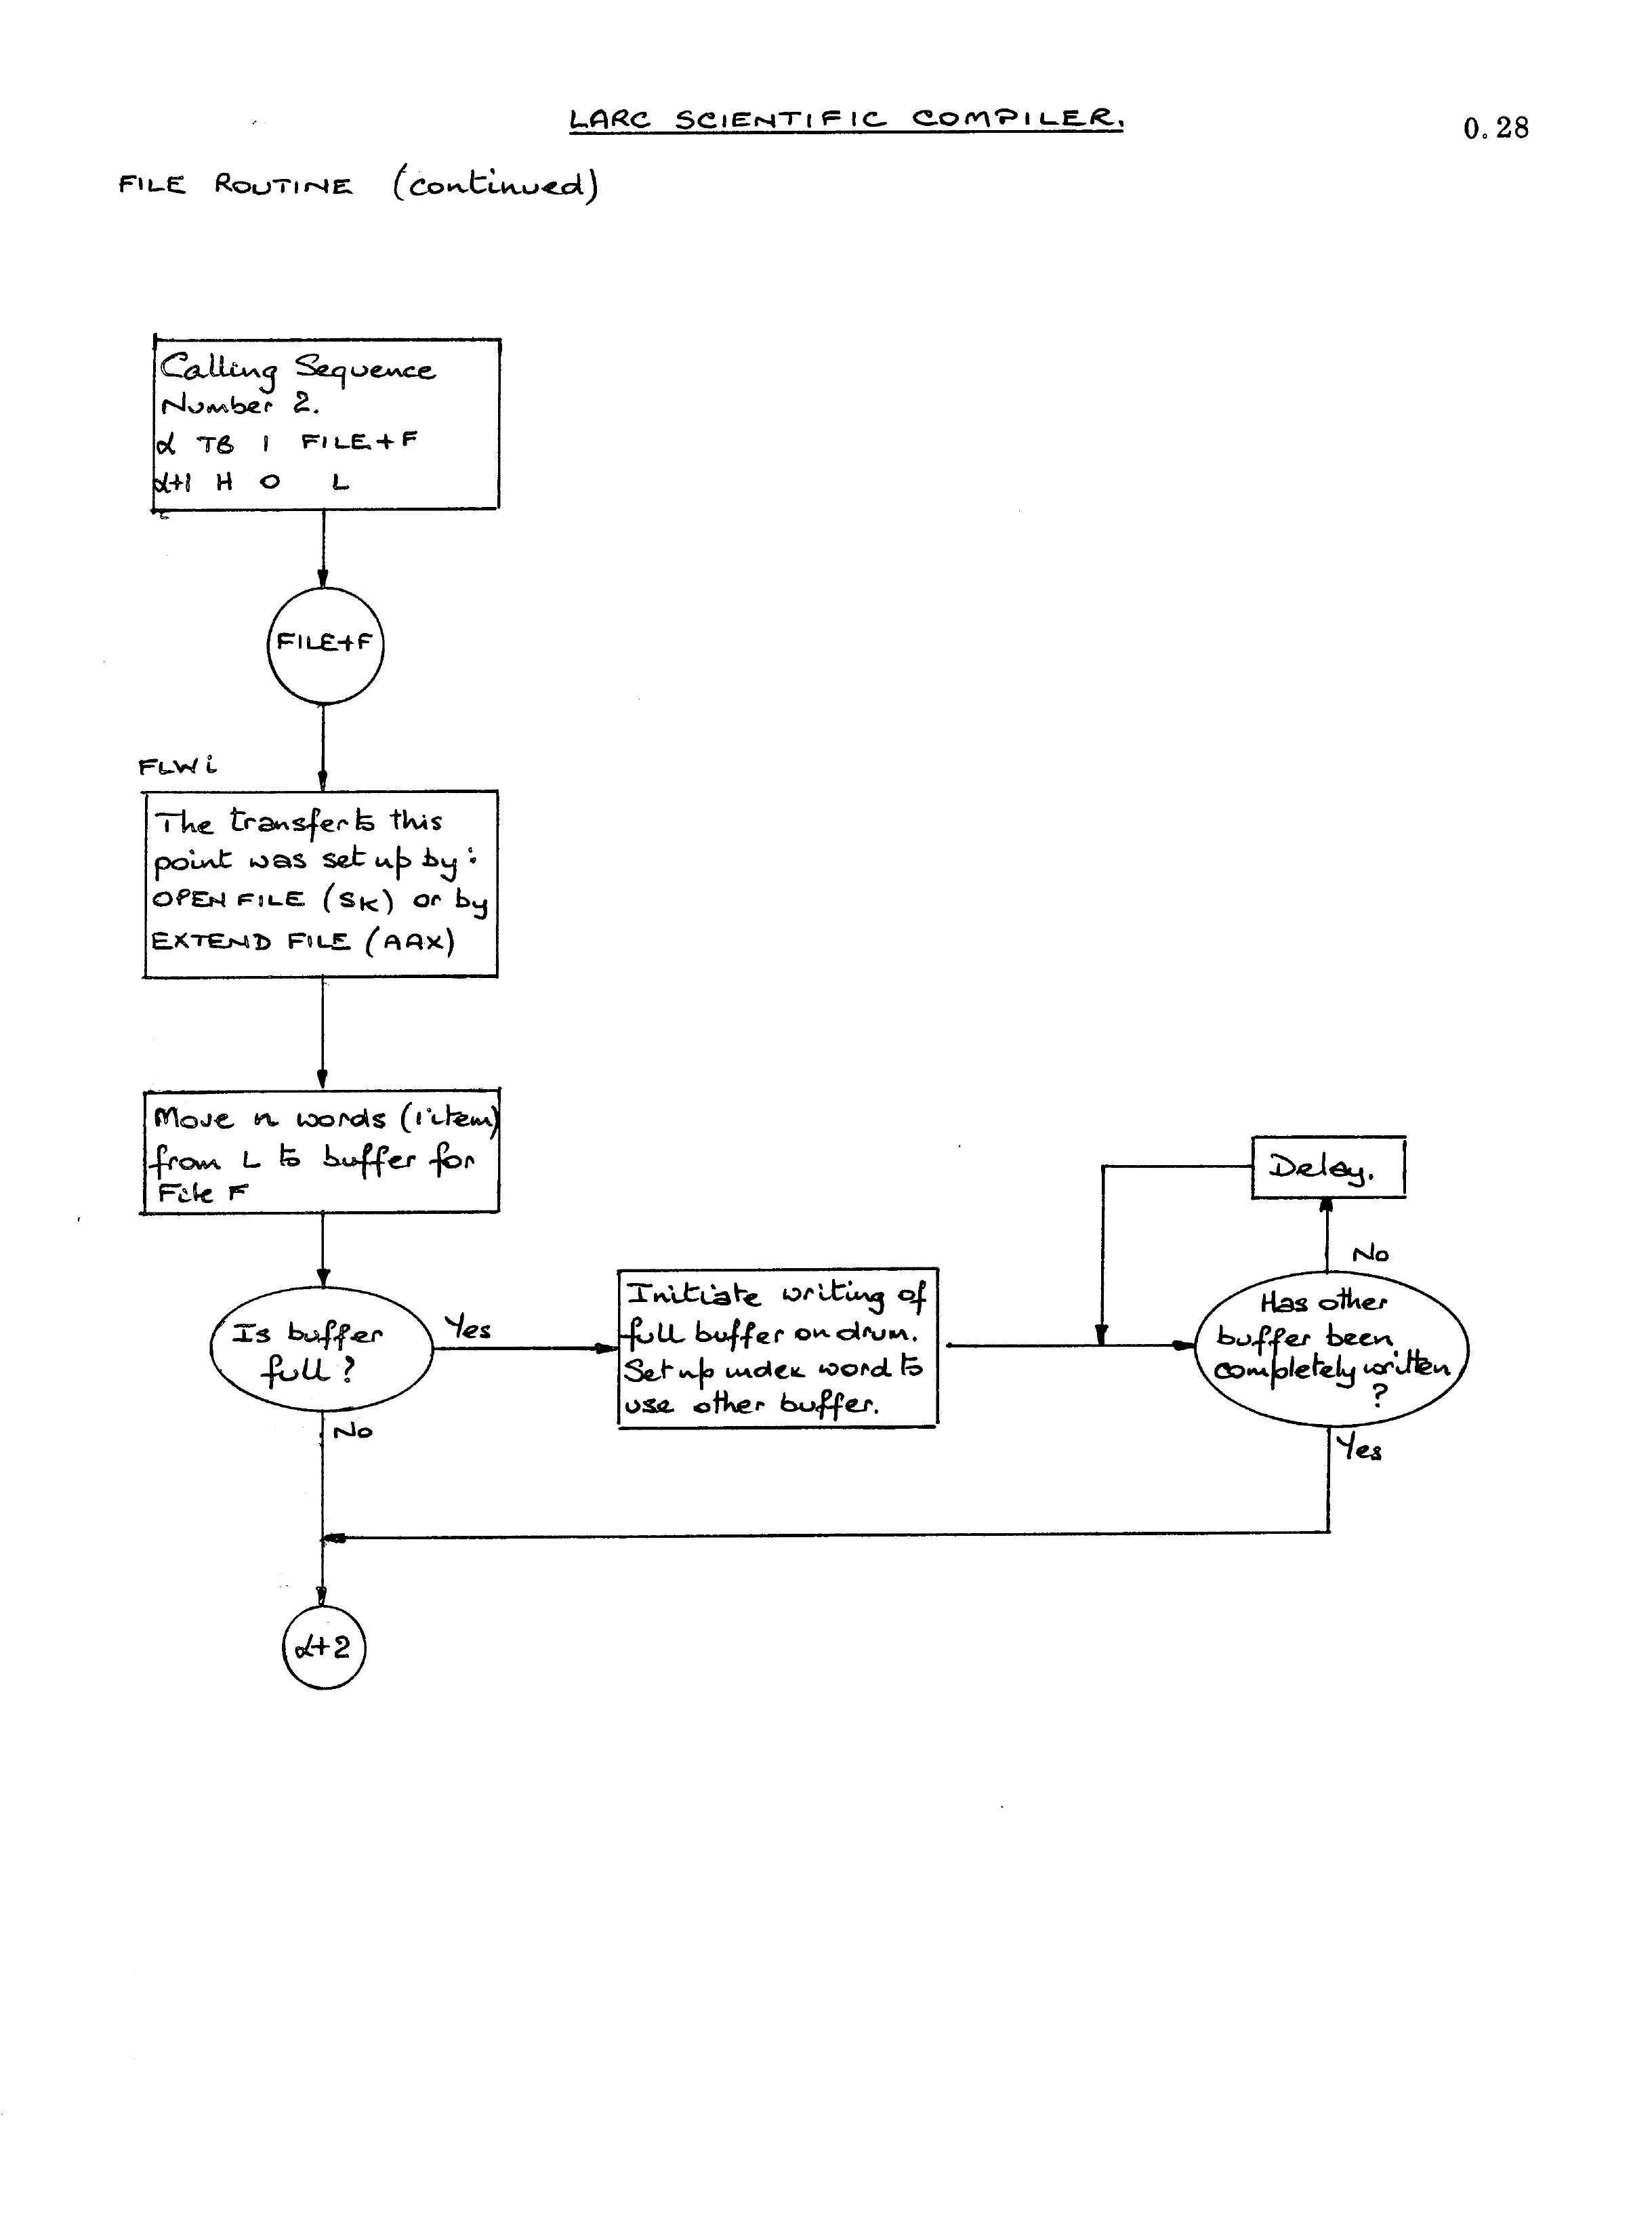 LARC SCIENTIFIC COMPILER.
0.28
FILE ROUTINE (continued)
Calling Sequence
Number 2.
α TB 1 FILE+F
α+1 H 0 L
FILE+F
FLWi
The transfer to this
point was set up by:
OPEN FILE (SK) or by
EXTEND FILE (AAX)
Move n words (1 item)
from L to buffer for
File F
Delay.
No
Is buffer
full?
Yes
No
Initiate writing of
full buffer on drum.
Set up index word to
use other buffer.
Has other
buffer been
completely written
?
Yes
α+2